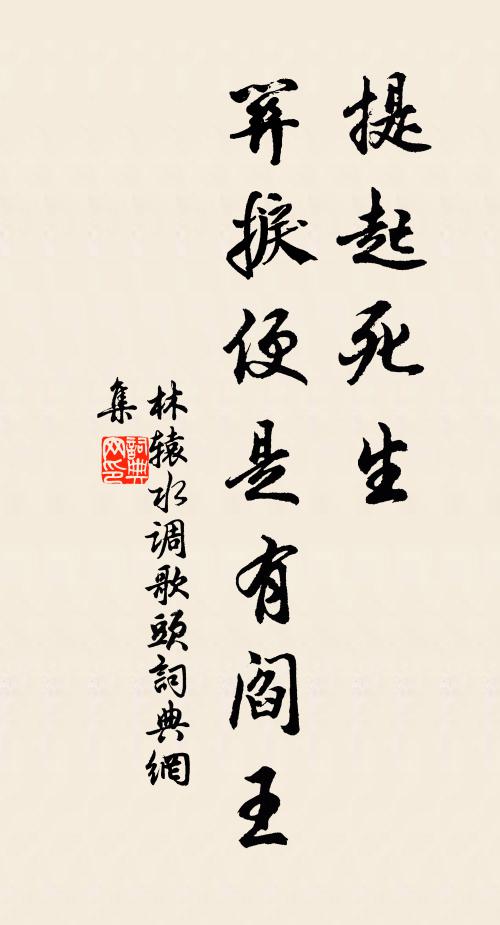 提起死生
关捩便是有阎王
林辕水调歌頭詞典網
集
詞典
网印